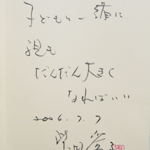 子どもと一緒に
親も
だんだん大きく
なればいい
2006.7.7